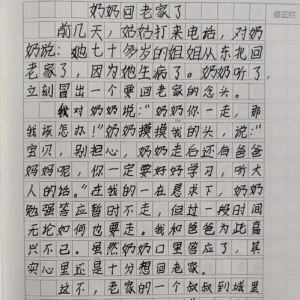 奶奶回老家了
修正栏
前几天，奶奶打来电话，对奶
奶说：她七十多岁的姐姐从东北回
老家了，因为她生病了。奶奶听了，
立刻冒出一个要回老家的念头。
我对奶奶说：“奶奶你一走，那
我该怎办！”奶奶摸摸我的头，说：“
宝贝，别担心，奶奶走后还有爸爸
妈妈呢，你一定要好好学习，听大
人的话。”在我的一在恳求下，奶奶
勉强答应暂时不走，但过一段时间
无论如何也要走。我和爸爸为此高
兴不已。虽然奶奶口里答应了，其
实心里还是十分想回老家。
这不，老家的一个叔叔到城里